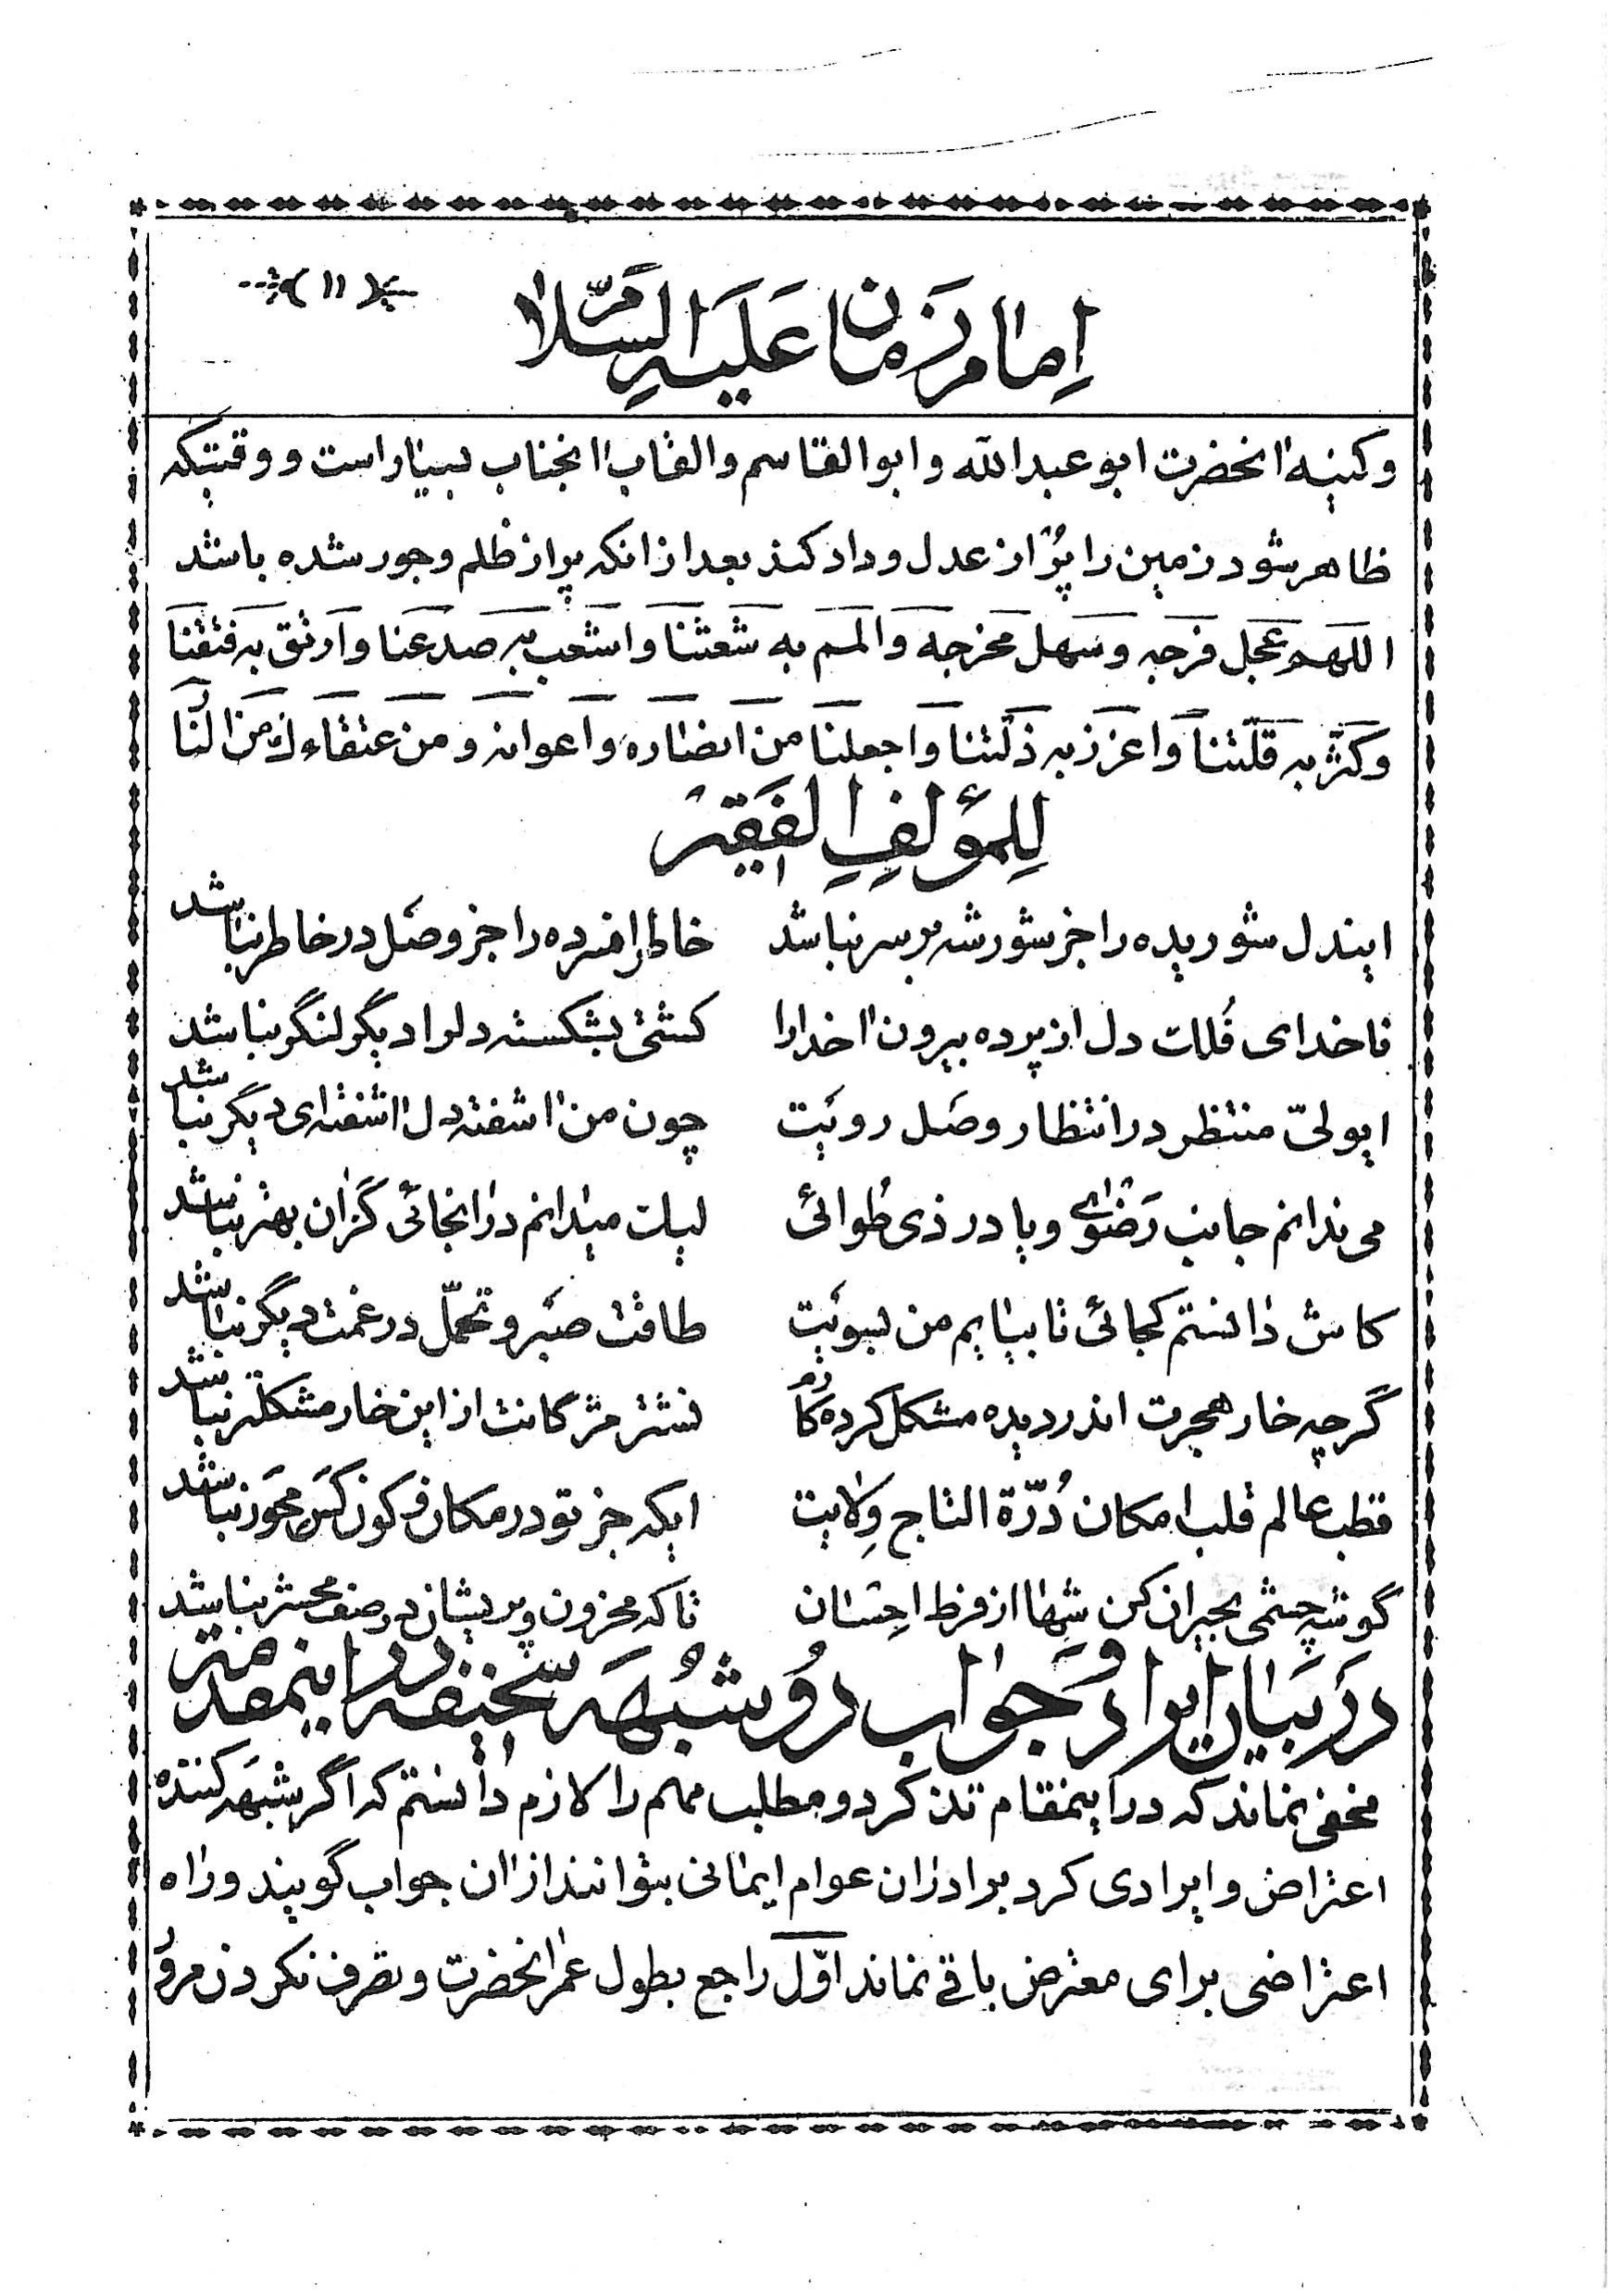 (۱۱)
اِمام زَمان عَلَیهِ السَّلام
و کنیه آنحضرت ابو عبدالله و ابوالقاسم و القاب آنجناب بسیار است و وقتیکه
ظاهر شود زمین را پُر از عدل و داد کند بعد از آنکه پر از ظلم و جور شده باشد
اللهم عجل فرجه و سهل مخرجه و المم به شعثنا و اشعب به صدعنا و ارتق به فتقنا
و کثّر به قلّتنا و اعزز به ذلّتنا و اجعلنا من انصاره و اعوانه و من عتقاءك من النّار
لِلمؤلفِ الفَقیر
ایندل شوریده را جز شورشه بر سر نباشد خاطر افسرده را جز وصل در خاطر نباشد
ناخدای فُلك دل از پرده بیرون آ خدا را کشتی بشکسته دلرا دیگر لنگر نباشد
ایولیّ منتظر در انتظار وصل رویت چون من آشفته دل آشفته‌ای دیگر نباشد
می ندانم جانب رَضوٰی و یا در ذی طُوائی لیك میدانم در آنجائی کزان بهتر نباشد
کاش دانستم کجائی تا بیایم من بسویت طاقت صبر و تحمّل در غمت دیگر نباشد
گرچه خار هجرت اندر دیده مشکل کرده کارم نشتر مژگانت از این خار مشکلتر نباشد
قطب عالم قلب امکان دُرّة التاج وِلایت ایکه جز تو در مکان و کون کس محور نباشد
گوشه چشمی بحیران کن شها از فرط احسان تا که محزون و پریشان در صف محشر نباشد
در بیان ایراد و جواب دو شبهه سخیفه در اینمقدمه
مخفی نماند که در اینمقام تذکر دو مطلب مهم را لازم دانستم که اگر شبهه کننده
اعتراض و ایرادی کرد برادران عوام ایمانی بتوانند از آن جواب گویند و راه
اعتراضی برای معترض باقی نماند اوّل راجع بطول عمر آنحضرت و تصرف نکردن مرور